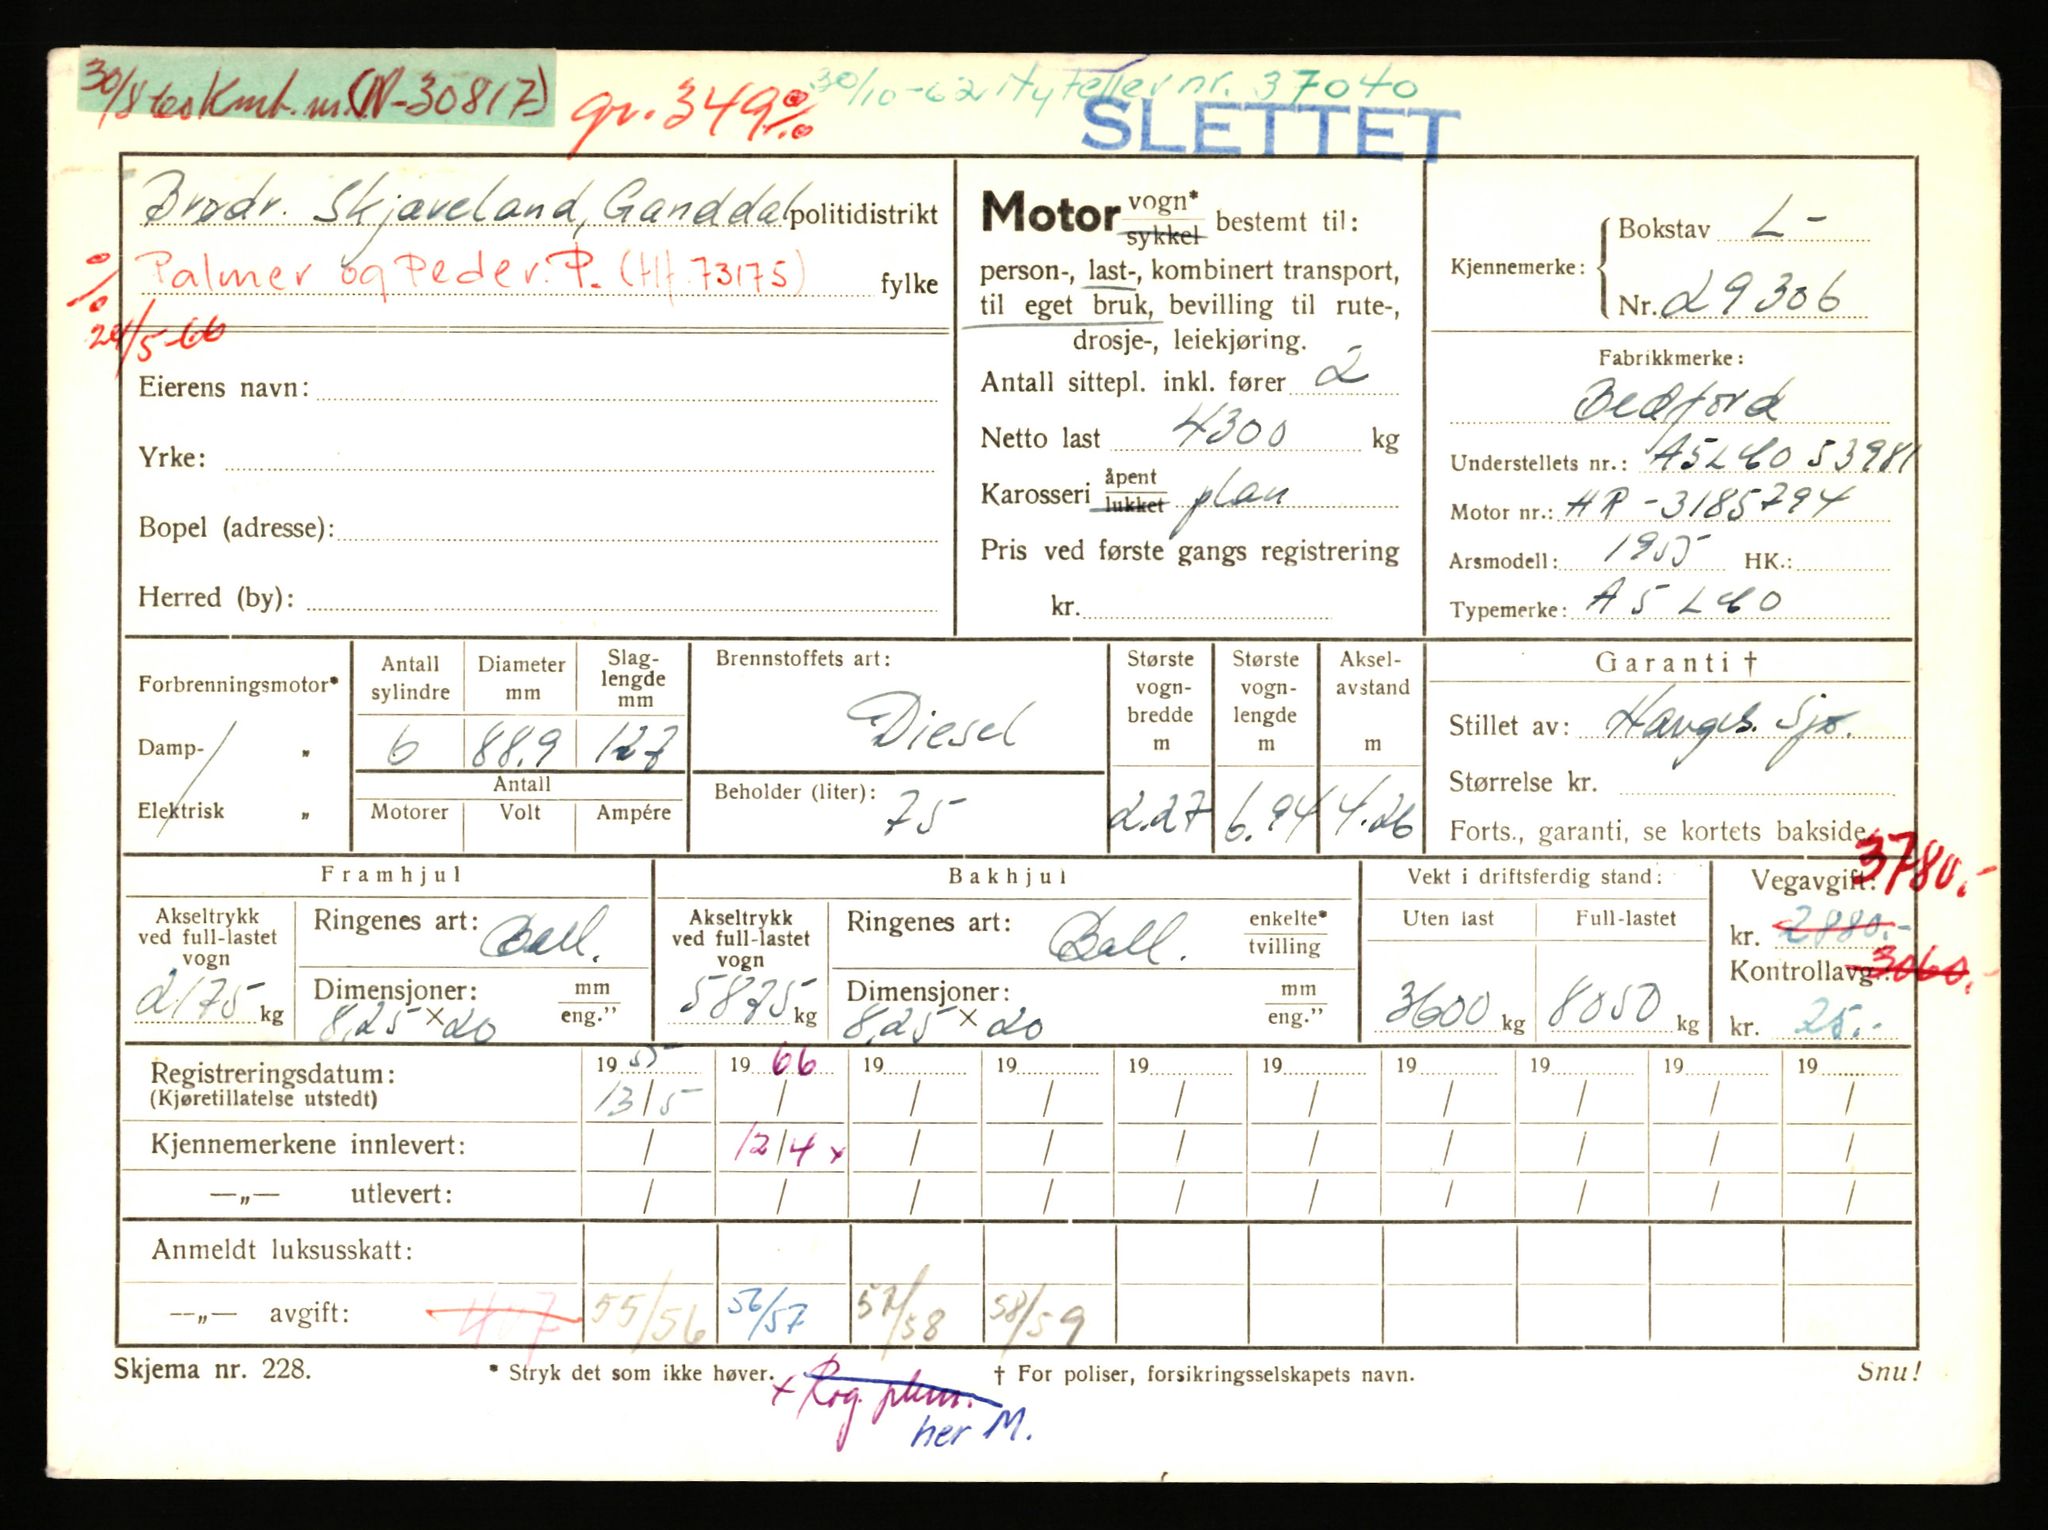 30/8 Kmt. nr. (N-30817)
gr. 349
30/10-62 Ny teller nr. 37040
SLETTET
Brødr. Skjæveland, Ganddal politidistrikt
% Palmer og Peder. P. (tlf. 73175) fylke
24/5-66
Eierens navn:
Yrke:
Bopel (adresse):
Herred (by):
Motor vogn* sykkel bestemt til:
person-, last-, kombinert transport,
til eget bruk, bevilling til rute-,
drosje-, leiekjøring.
Antall sittepl. inkl. fører 2
Netto last 4300 kg
Karosseri åpent lukket plan
Pris ved første gangs registrering
kr.
Kjennemerke: Bokstav L-
Nr. 29306
Fabrikkmerke:
Bedford
Understellets nr.: A5LCO 53981
Motor nr.: HR-3185794
Arsmodell: 1955 HK.:
Typemerke: A5LCO
Forbrenningsmotor*
Damp- "
Elektrisk "
Antall sylindre 6
Diameter mm 88,9
Slag-lengde mm 127
Antall
Motorer Volt Ampére
Brennstoffets art:
Diesel
Beholder (liter):
75
Største vogn-bredde m 2.27
Største vogn-lengde m 6.94
Aksel-avstand m 4.26
Garanti †
Stillet av: Hauges. Sjø.
Størrelse kr.
Forts., garanti, se kortets bakside.
Framhjul
Akseltrykk ved full-lastet vogn
2175 kg
Ringenes art: Ball.
Dimensjoner: mm eng."
8,25 x 20
Bakhjul
Akseltrykk ved full-lastet vogn
5875 kg
Ringenes art: Ball. enkelte* tvilling
Dimensjoner: mm eng."
8,25 x 20
Vekt i driftsferdig stand:
Uten last Full-lastet
3600 kg 8050 kg
Vegavgift: 3780.-
kr. 2880.-
Kontrollavg.: 3060.-
kr. 25.-
Registreringsdatum: 19 55 19 66 19 19 19 19 19 19 19 19
(Kjøretillatelse utstedt) 13/5 / / / / / / / / /
Kjennemerkene innlevert: / 12/4 x / / / / / / / /
—„— utlevert: / / / / / / / / / /
Anmeldt luksusskatt:
—„— avgift: 407 55/56 56/57 57/58 58/59
Skjema nr. 228.
* Stryk det som ikke høver.
† For poliser, forsikringsselskapets navn.
Snu!
x Rog.
her M.